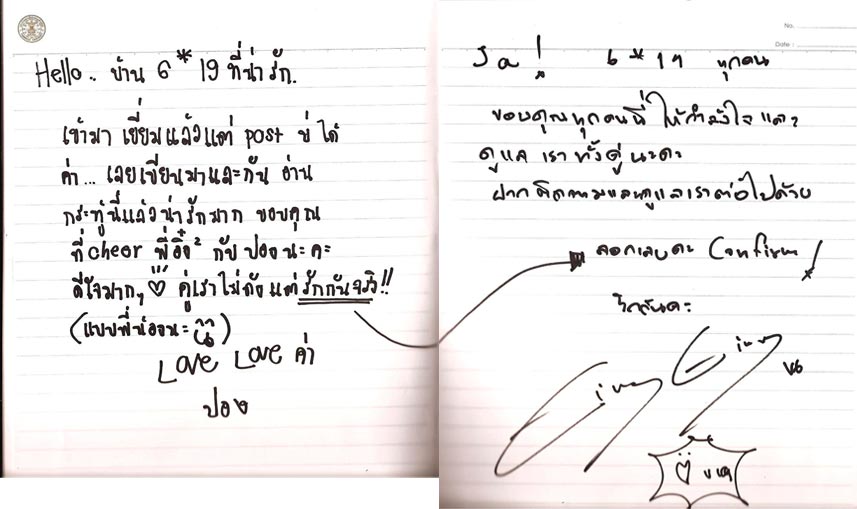 Hello.. บ้าน 6*19 ที่น่ารัก.
เข้ามา เยี่ยมแล้วแต่ post บ่ ได้
ค่า... เลยเขียนมาละกัน อ่าน
กระทู้นี้แล้วน่ารักมาก ขอบคุณ
ที่ cheer พี่อิ๋ง² กับ ปองนะคะ
ดีใจมากๆ คู่เราไม่ดังแต่รักกันจริง!!
(แบบพี่น้องนะ)
Love Love ค่า
ปอง
No.
Date :
Sa! 6*19 ทุกคน
ขอบคุณทุกคนที่ให้กำลังใจและ
ดูแล เราทั้งคู่นะคะ
ฝากติดตามและดูแลเราต่อไปด้วย
ลอกเลยคะ Confirm!
รักกันคะ